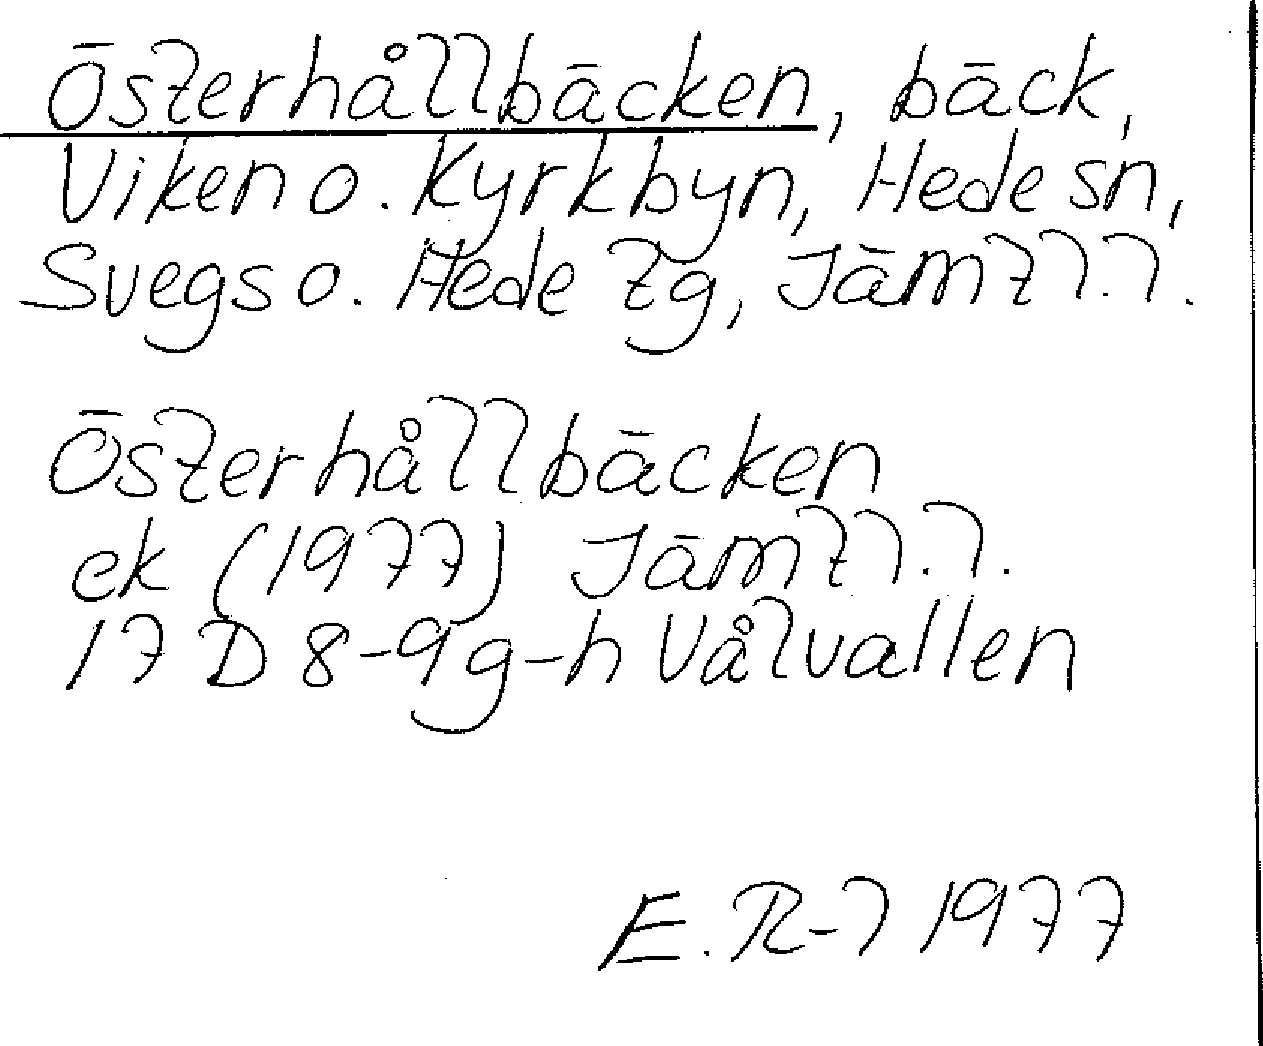 Österhållbäcken, bäck,
Viken o. Kyrkbyn, Hede sn,
Svegs o. Hede tg, Jämtl. l.
Österhållbäcken
ek (1977) Jämtl. l.
17 D 8-9 g-h Vålvallen
E. R-l 1977